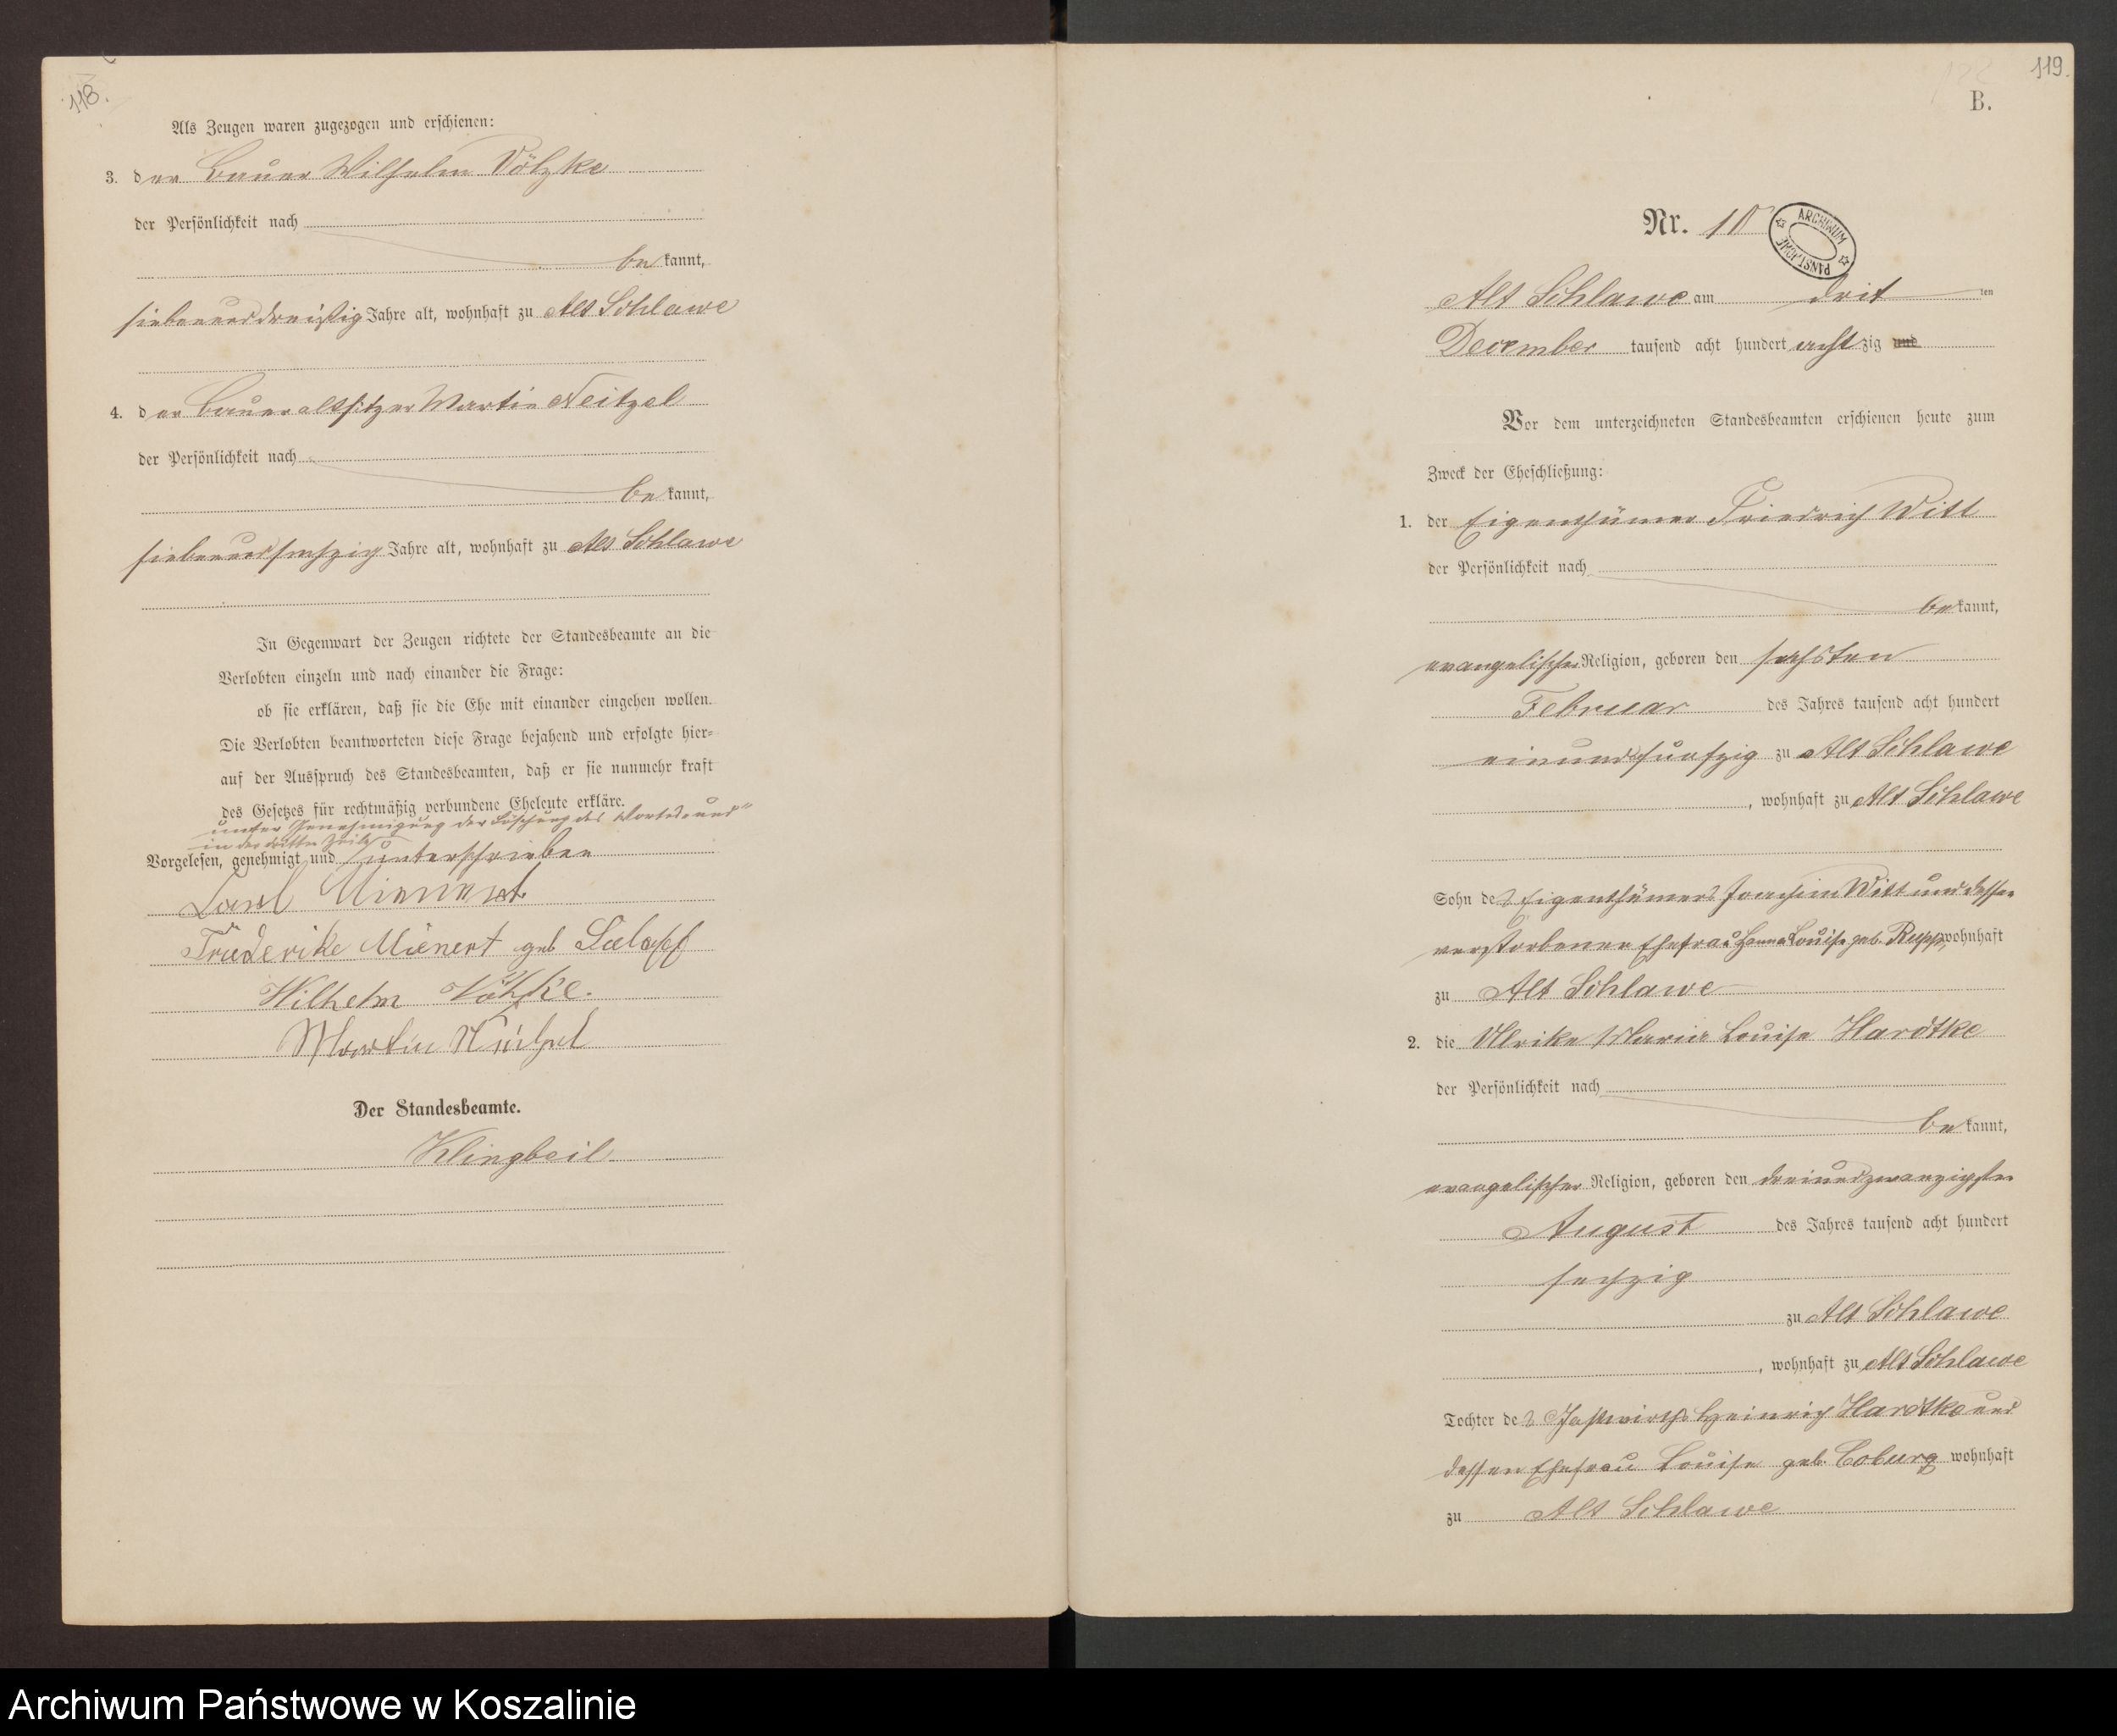 118.
Als Zeugen waren zugezogen und erschienen:
3. der Bauer Wilhelm Völzke
der Persönlichkeit nach
bekannt,
siebenunddreißig Jahre alt, wohnhaft zu Alt Schlawe
4. der Baueraltsitzer Martin Neitzel
der Persönlichkeit nach
bekannt,
siebenundsechzig Jahre alt, wohnhaft zu Alt Schlawe
In Gegenwart der Zeugen richtete der Standesbeamte an die
Verlobten einzeln und nach einander die Frage:
ob sie erklären, daß sie die Ehe mit einander eingehen wollen.
Die Verlobten beantworteten diese Frage bejahend und erfolgte hier-
auf der Ausspruch des Standesbeamten, daß er sie nunmehr kraft
des Gesetzes für rechtmäßig verbundene Eheleute erkläre.
unter Genehmigung der Löschung des Wortes „und"
in der dritten Zeile
Vorgelesen, genehmigt und unterschrieben
Carl Mienert
Friederike Mienert geb
Wilhelm Völzke.
Martin Neitzel
Der Standesbeamte.
Klingbeil
119.
B.
Nr. 10
ARCHIWUM PAŃSTWOWE
Alt Schlawe am drit ten
December tausend acht hundert achtzig und
Vor dem unterzeichneten Standesbeamten erschienen heute zum
Zweck der Eheschließung:
1. der Eigenthümer Friedrich Witt
der Persönlichkeit nach
bekannt,
evangelischer Religion, geboren den sechsten
Februar des Jahres tausend acht hundert
einundfünfzig zu Alt Schlawe
, wohnhaft zu Alt Schlawe
Sohn des Eigenthümers Joachim Witt und dessen
verstorbenen Ehefrau Hanna Louise geb. Rupp, wohnhaft
zu Alt Schlawe
2. die Ulrike Marie Louise Hardtke
der Persönlichkeit nach
bekannt,
evangelischer Religion, geboren den dreiundzwanzigsten
August des Jahres tausend acht hundert
sechzig
zu Alt Schlawe
, wohnhaft zu Alt Schlawe
Tochter des Gastwirths Heinrich Hardtke und
dessen Ehefrau Louise geb. Coburg wohnhaft
zu Alt Schlawe
Archiwum Państwowe w Koszalinie